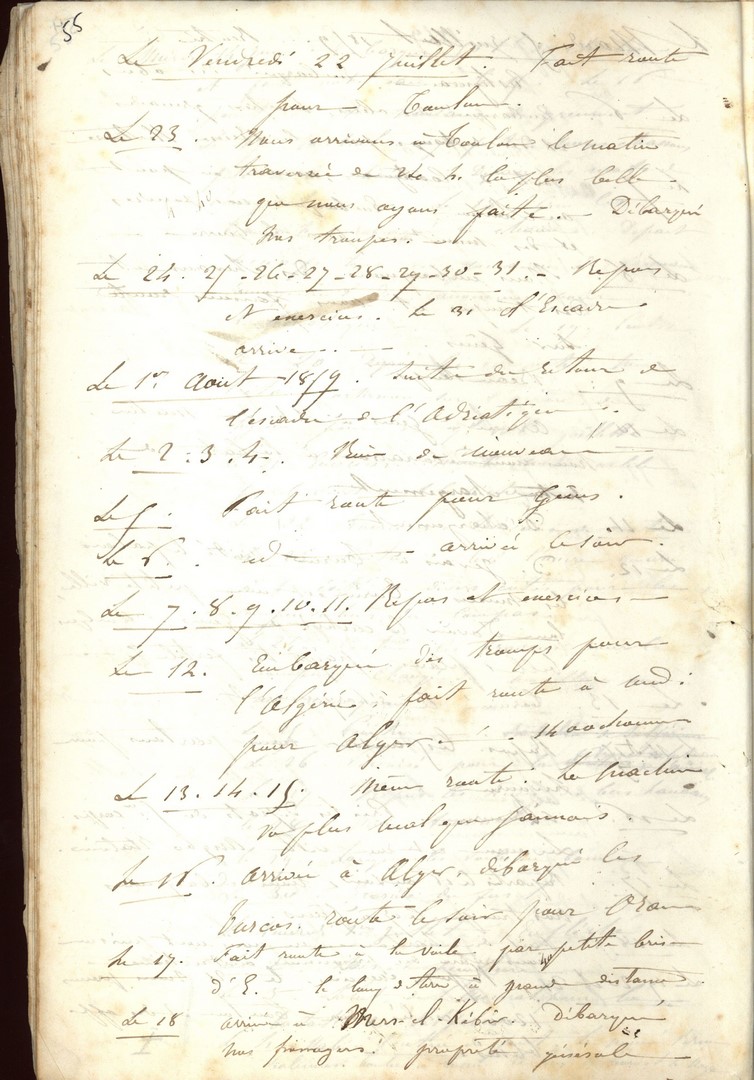 55
Le Vendredi 22 Juillet. Fait route
pour Toulon.
Le 23. Nous arrivons à Toulon le matin
traversée de 24 h. la plus belle
que nous ayons faite. - Débarqué
nos troupes. -
Le 24. 25 - 26 - 27 - 28 - 29 - 30 - 31. - Repos
et exercices. Le 31 l'Escadre
arrive. -
Le 1er Août 1859. Suite du retour de
l'escadre de l'Adriatique.
Le 2 . 3 . 4 . Rien de nouveau
Le 5. Fait route pour Gênes.
Le 6. id - arrivée le soir.
Le 7 . 8 . 9 . 10 . 11. Repos et exercices -
Le 12. Embarqué des troupes pour
l'Algérie, fait route à midi
pour Alger. - 1400 hommes
Le 13. 14. 15. Même route. La machine
va plus mal que jamais.
Le 16. arrivée à Alger, débarqué les
Turcos. route le soir pour Oran
Le 17. Fait route à la voile par petite brise
d'E. - le long de terre à grande distance.
Le 18 arrivée à Mers-el-Kébir. Débarqué
nos passagers! propreté générale